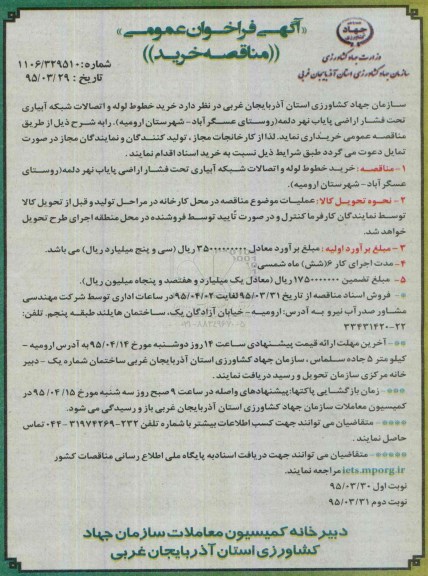 «آگهی فراخوان عمومی»
((مناقصه خرید))
جهاد
وزارت جهاد کشاورزی
سازمان جهاد کشاورزی استان آذربایجان غربی
شماره: ۱۱۰۶/۳۲۹۵۱۰
تاریخ : ۹۵/۰۳/۲۹
سازمان جهاد کشاورزی استان آذربایجان غربی در نظر دارد خرید خطوط لوله و اتصالات شبکه آبیاری
تحت فشار اراضی پایاب نهر دلمه(روستای عسگرآباد-شهرستان ارومیه). رابه شرح ذیل از طریق
مناقصه عمومی خریداری نماید. لذا از کارخانجات مجاز، تولید کنندگان و نمایندگان مجاز در صورت
تمایل دعوت می گردد طبق شرایط ذیل نسبت به خرید اسناد اقدام نمایند.
۱-مناقصه : خرید خطوط لوله و اتصالات شبکه آبیاری تحت فشار اراضی پایاب نهر دلمه(روستای
عسگر آباد- شهرستان ارومیه).
۲- نحوه تحویل کالا: عملیات موضوع مناقصه در محل کارخانه در مراحل تولید و قبل از تحویل کالا
توسط نمایندگان کارفرما کنترل و در صورت تأیید توسط فروشنده در محل منطقه اجرای طرح تحویل
خواهد شد.
۳- مبلغ برآورد اولیه : مبلغ برآورد معادل ۳۵۰۰۰۰۰۰۰۰۰ ریال (سی و پنج میلیارد ریال) می باشد.
۴-مدت اجرای کار ۶(شش) ماه شمسی.
۵- مبلغ تضمین ۱۷۵۰۰۰۰۰۰۰ ریال (معادل یک میلیارد و هفتصد و پنجاه میلیون ریال).
* فروش اسناد مناقصه از تاریخ ۹۵/۰۳/۳۱ لغایت ۹۵/۰۴/۰۲ در ساعات اداری توسط شرکت مهندسی
مشاور صدر آب نیرو به آدرس: ارومیه-خیابان آزادگان یک، ساختمان هایلند طبقه پنجم. تلفن:
۳۳۴۳۱۴۲۰-۲۲
** - آخرین مهلت ارائه قیمت پیشنهادی ساعت ۱۴ روز دوشنبه مورخ ۹۵/۰۴/۱۴ به آدرس ارومیه -
کیلومتر ۵ جاده سلماس، سازمان جهاد کشاورزی استان آذربایجان غربی ساختمان شماره یک - دبیر
خانه مرکزی سازمان تحویل و رسید دریافت نمایند.
*** - زمان بازگشایی پاکتها: پیشنهادهای واصله در ساعت ۹ صبح روز سه شنبه مورخ ۹۵/۰۴/۱۵ در
کمیسیون معاملات سازمان جهاد کشاورزی استان آذربایجان غربی باز و رسیدگی می شود.
**** - متقاضیان می توانند جهت کسب اطلاعات بیشتر با شماره تلفن ۲۳۲-۳۱۹۷۴۲۶۹-۰۴۴ تماس
حاصل نمایند.
***** - متقاضیان می توانند جهت دریافت اسنادبه پایگاه ملی اطلاع رسانی مناقصات کشور
iets.mporg.ir مراجعه نمایند.
نوبت اول ۹۵/۰۳/۳۰
نوبت دوم ۹۵/۰۳/۳۱
دبیر خانه کمیسیون معاملات سازمان جهاد
کشاورزی استان آذربایجان غربی